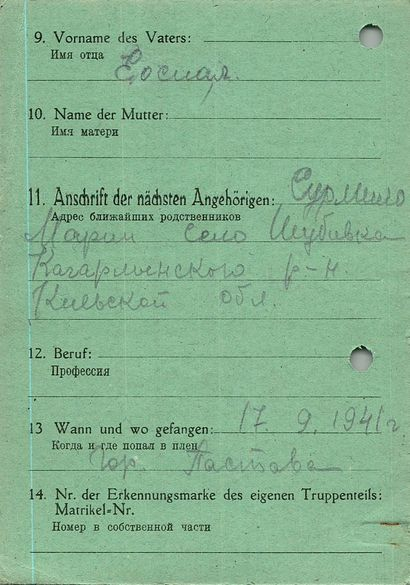 9. Vorname des Vaters:
Имя отца
10. Name der Mutter:
Имя матери
11. Anschrift der nächsten Angehörigen:
Адрес ближайших родственников
Марии Село
Кагарлыкского р-н.
Киевской обл.
12. Beruf:
Профессия
13 Wann und wo gefangen: 17. 9. 1941 г
Когда и где попал в плен
Гор.
14. Nr. der Erkennungsmarke des eigenen Truppenteils:
Matrikel=Nr.
Номер в собственной части